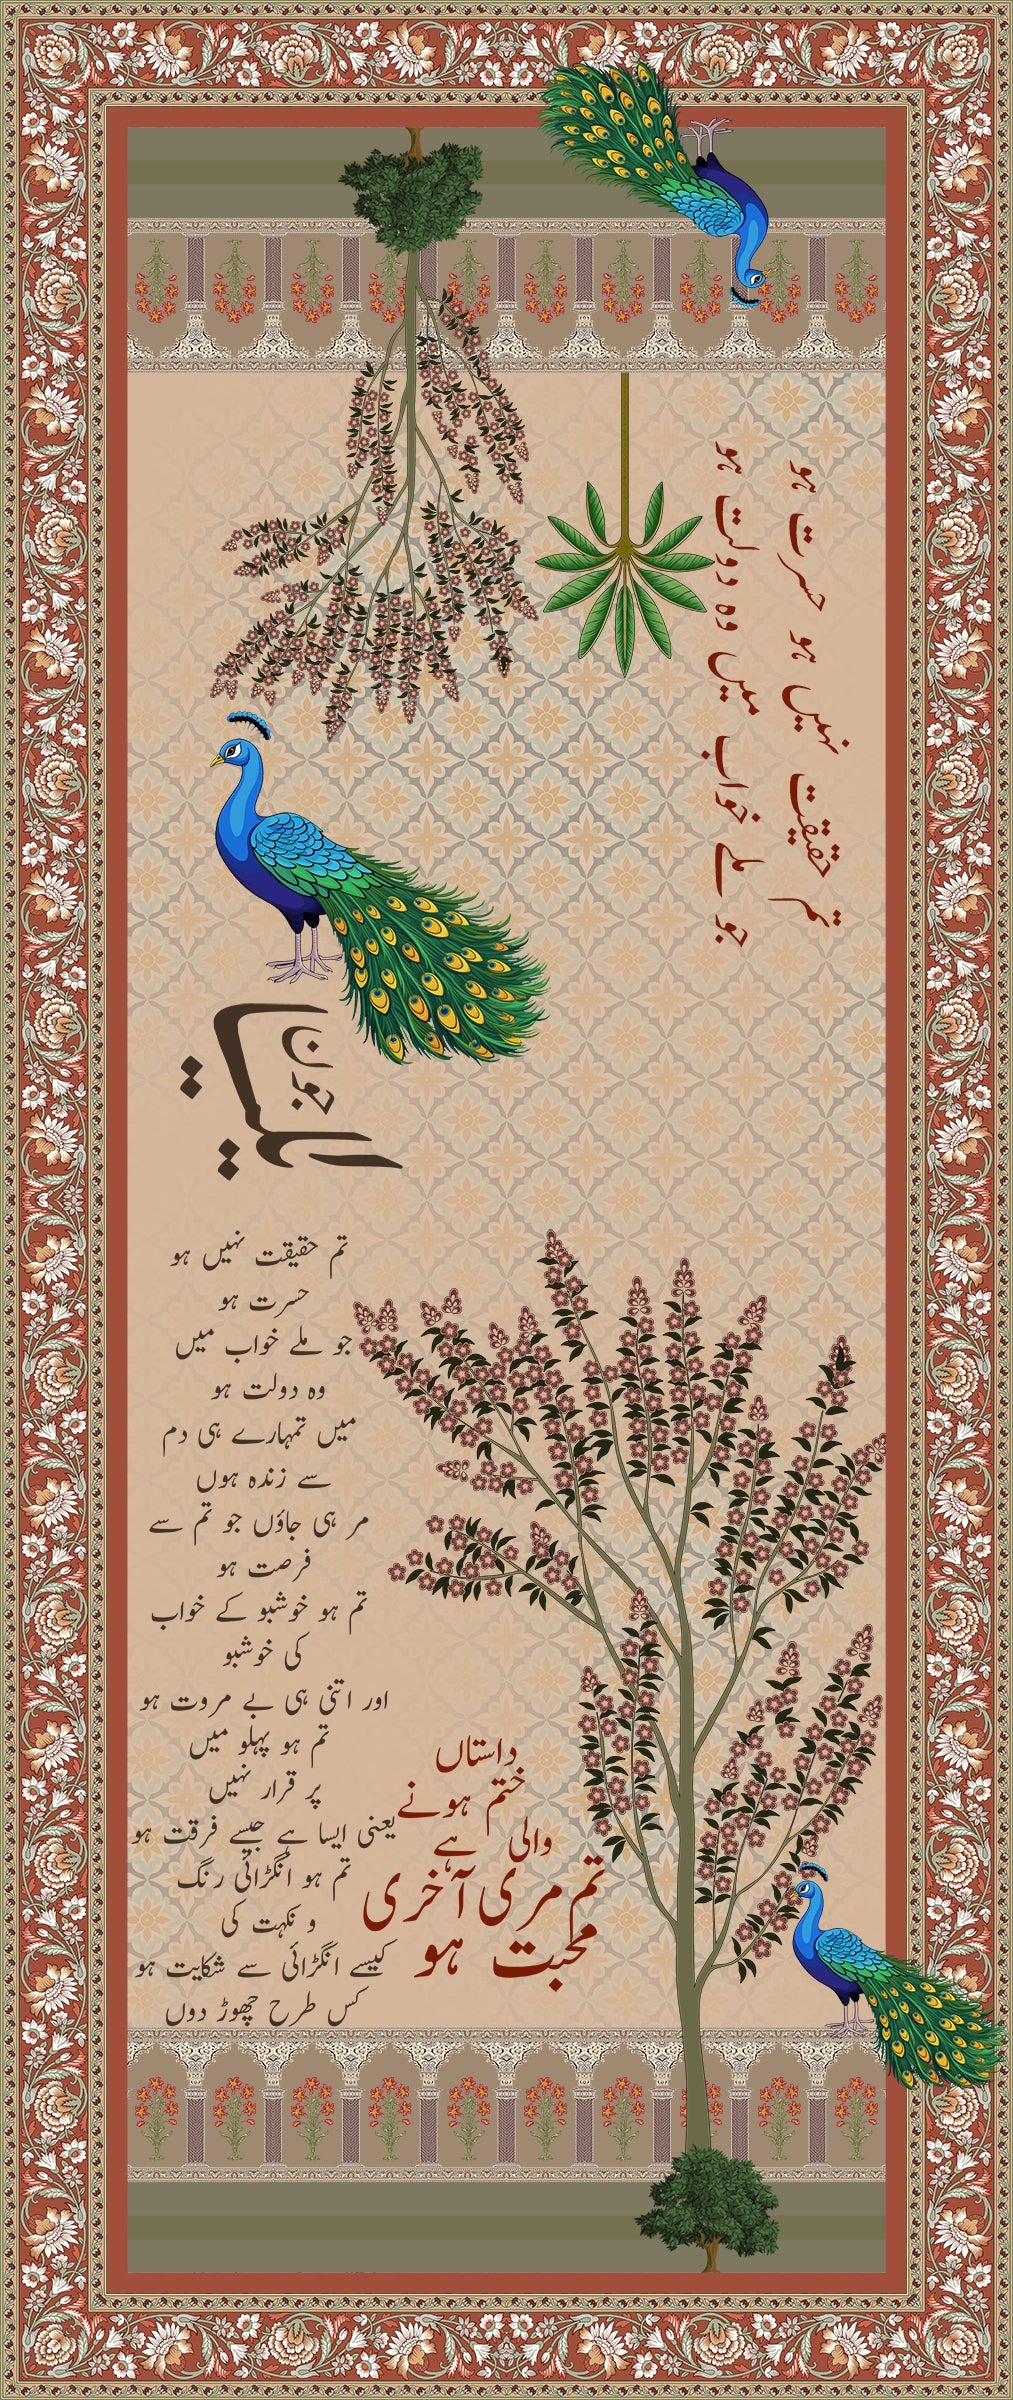 تم حقیقت نہیں ہو حسرت ہو
جو ملے خواب میں وہ دولت ہو
جون
ایلیا
تم حقیقت نہیں ہو
حسرت ہو
جو ملے خواب میں
وہ دولت ہو
میں تمہارے ہی دم
سے زندہ ہوں
مر ہی جاؤں جو تم سے
فرصت ہو
تم ہو خوشبو کے خواب
کی خوشبو
اور اتنی ہی بے مروت ہو
تم ہو پہلو میں
پر قرار نہیں
یعنی ایسا ہے جیسے فرقت ہو
تم ہو انگڑائی رنگ
و نکہت کی
کیسے انگڑائی سے شکایت ہو
کس طرح چھوڑ دوں
داستاں
ختم ہونے
والی ہے
تم مری آخری
محبت ہو